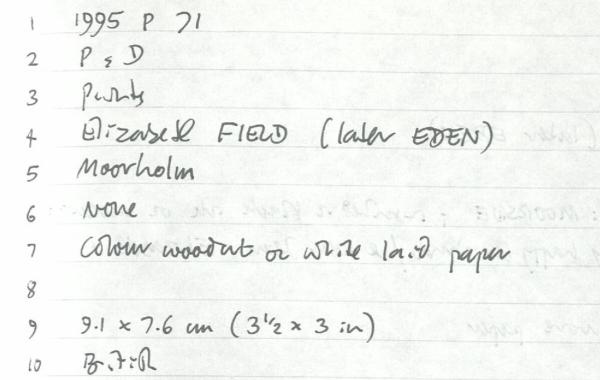 1 1995 P 71
2 P & D
3 Prints
4 Elizabeth FIELD (later EDEN)
5 Moorholm
6 None
7 Colour woodcut on white laid paper
8
9 9.1 x 7.6 cm (3 1/2 x 3 in)
10 British